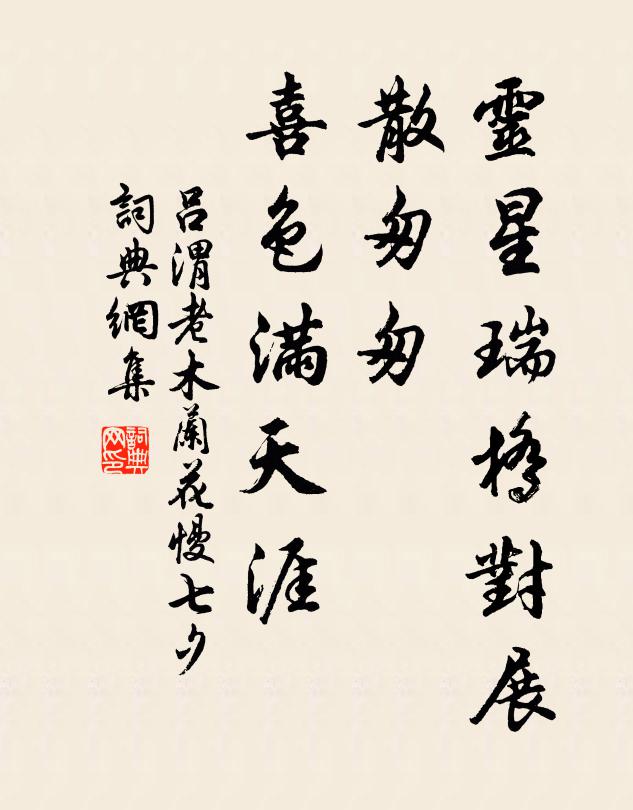 靈星瑞橋對展
散匆匆
喜色滿天涯
呂渭老木蘭花慢七夕
詞典網集
詞典
网印